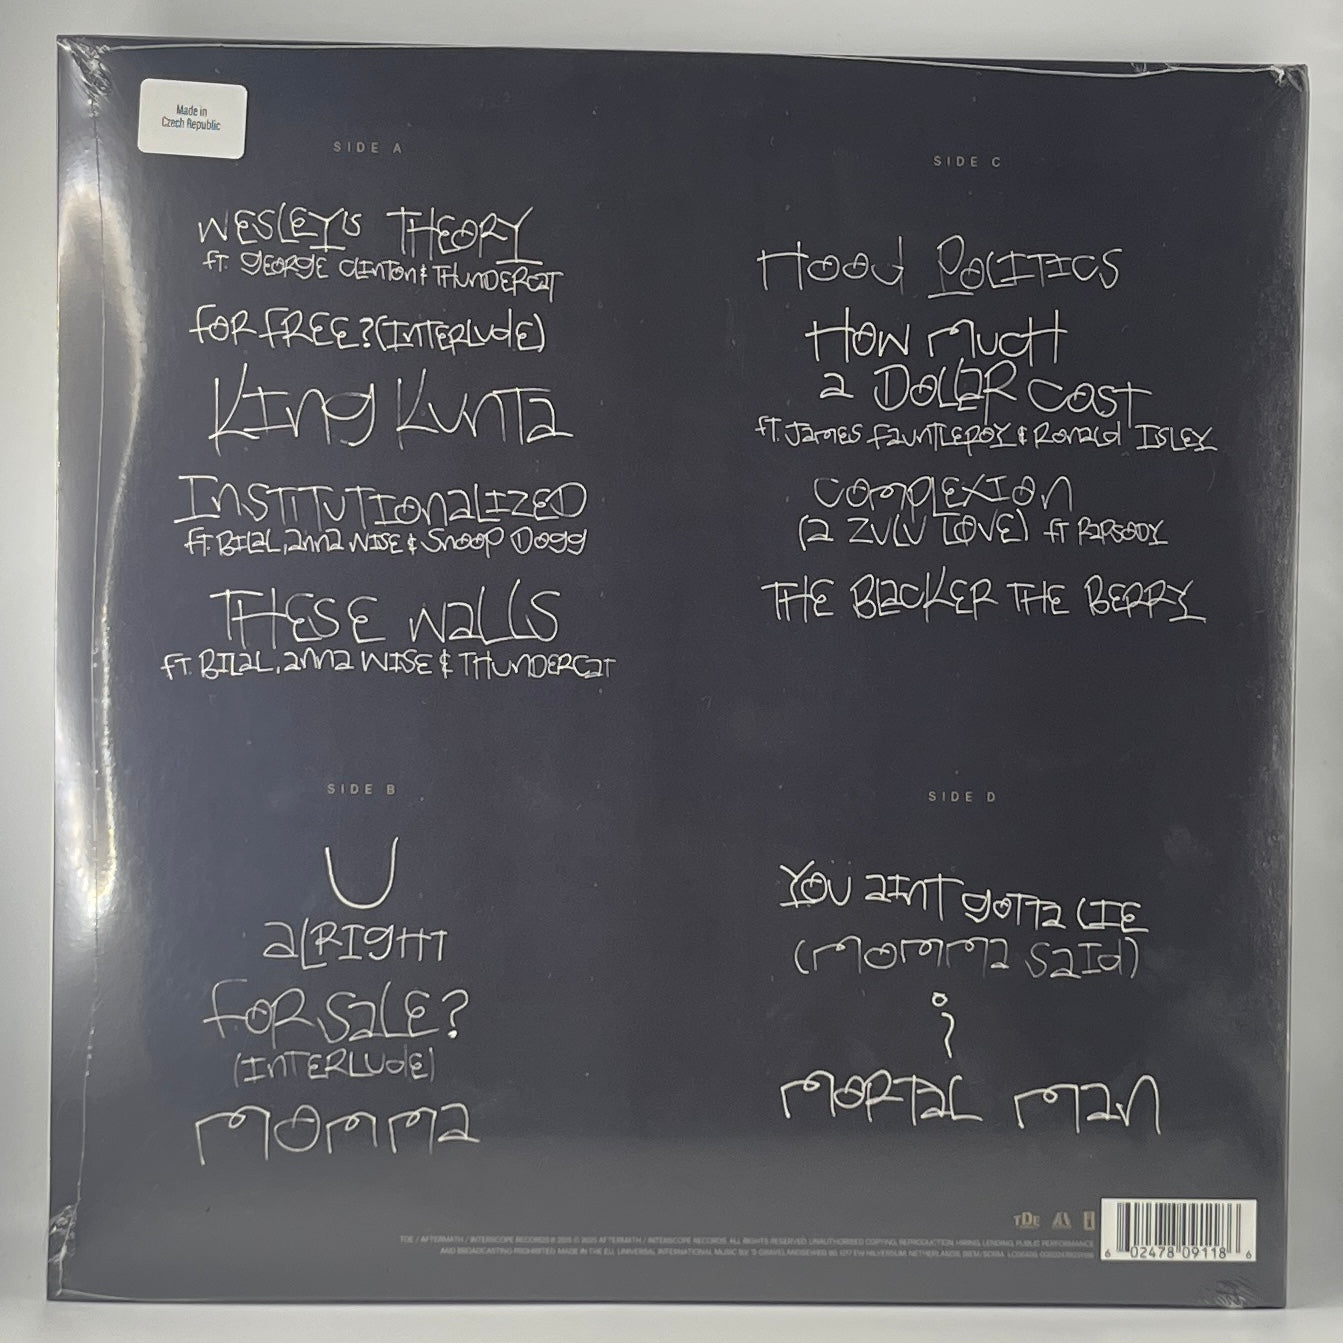 Made in
Czech Republic
SIDE A
WESLEY'S THEORY
ft. GEORGE CLINTON & THUNDERCAT
FOR FREE? (INTERLUDE)
KING KUNTA
INSTITUTIONALIZED
ft. BILAL, ANNA WISE & SNOOP DOGG
THESE WALLS
ft. BILAL, ANNA WISE & THUNDERCAT
SIDE B
U
ALRIGHT
FOR SALE?
(INTERLUDE)
MOMMA
SIDE C
HOOD POLITICS
HOW MUCH
A DOLLAR COST
ft. JAMES FAUNTLEROY & RONALD ISLEY
COMPLEXION
(A ZULU LOVE) ft RAPSODY
THE BLACKER THE BERRY
SIDE D
YOU AINT GOTTA LIE
(MOMMA SAID)
i
MORTAL MAN
TDE
TDE / AFTERMATH / INTERSCOPE RECORDS AFTERMATH / INTERSCOPE RECORDS. ALL RIGHTS RESERVED. UNAUTHORISED COPYING, REPRODUCTION, HIRING, LENDING, PUBLIC PERFORMANCE
AND BROADCASTING PROHIBITED. MADE IN THE EU. UNIVERSAL INTERNATIONAL MUSIC B.V. HILVERSUM, NETHERLANDS.
6 02478 09118 6